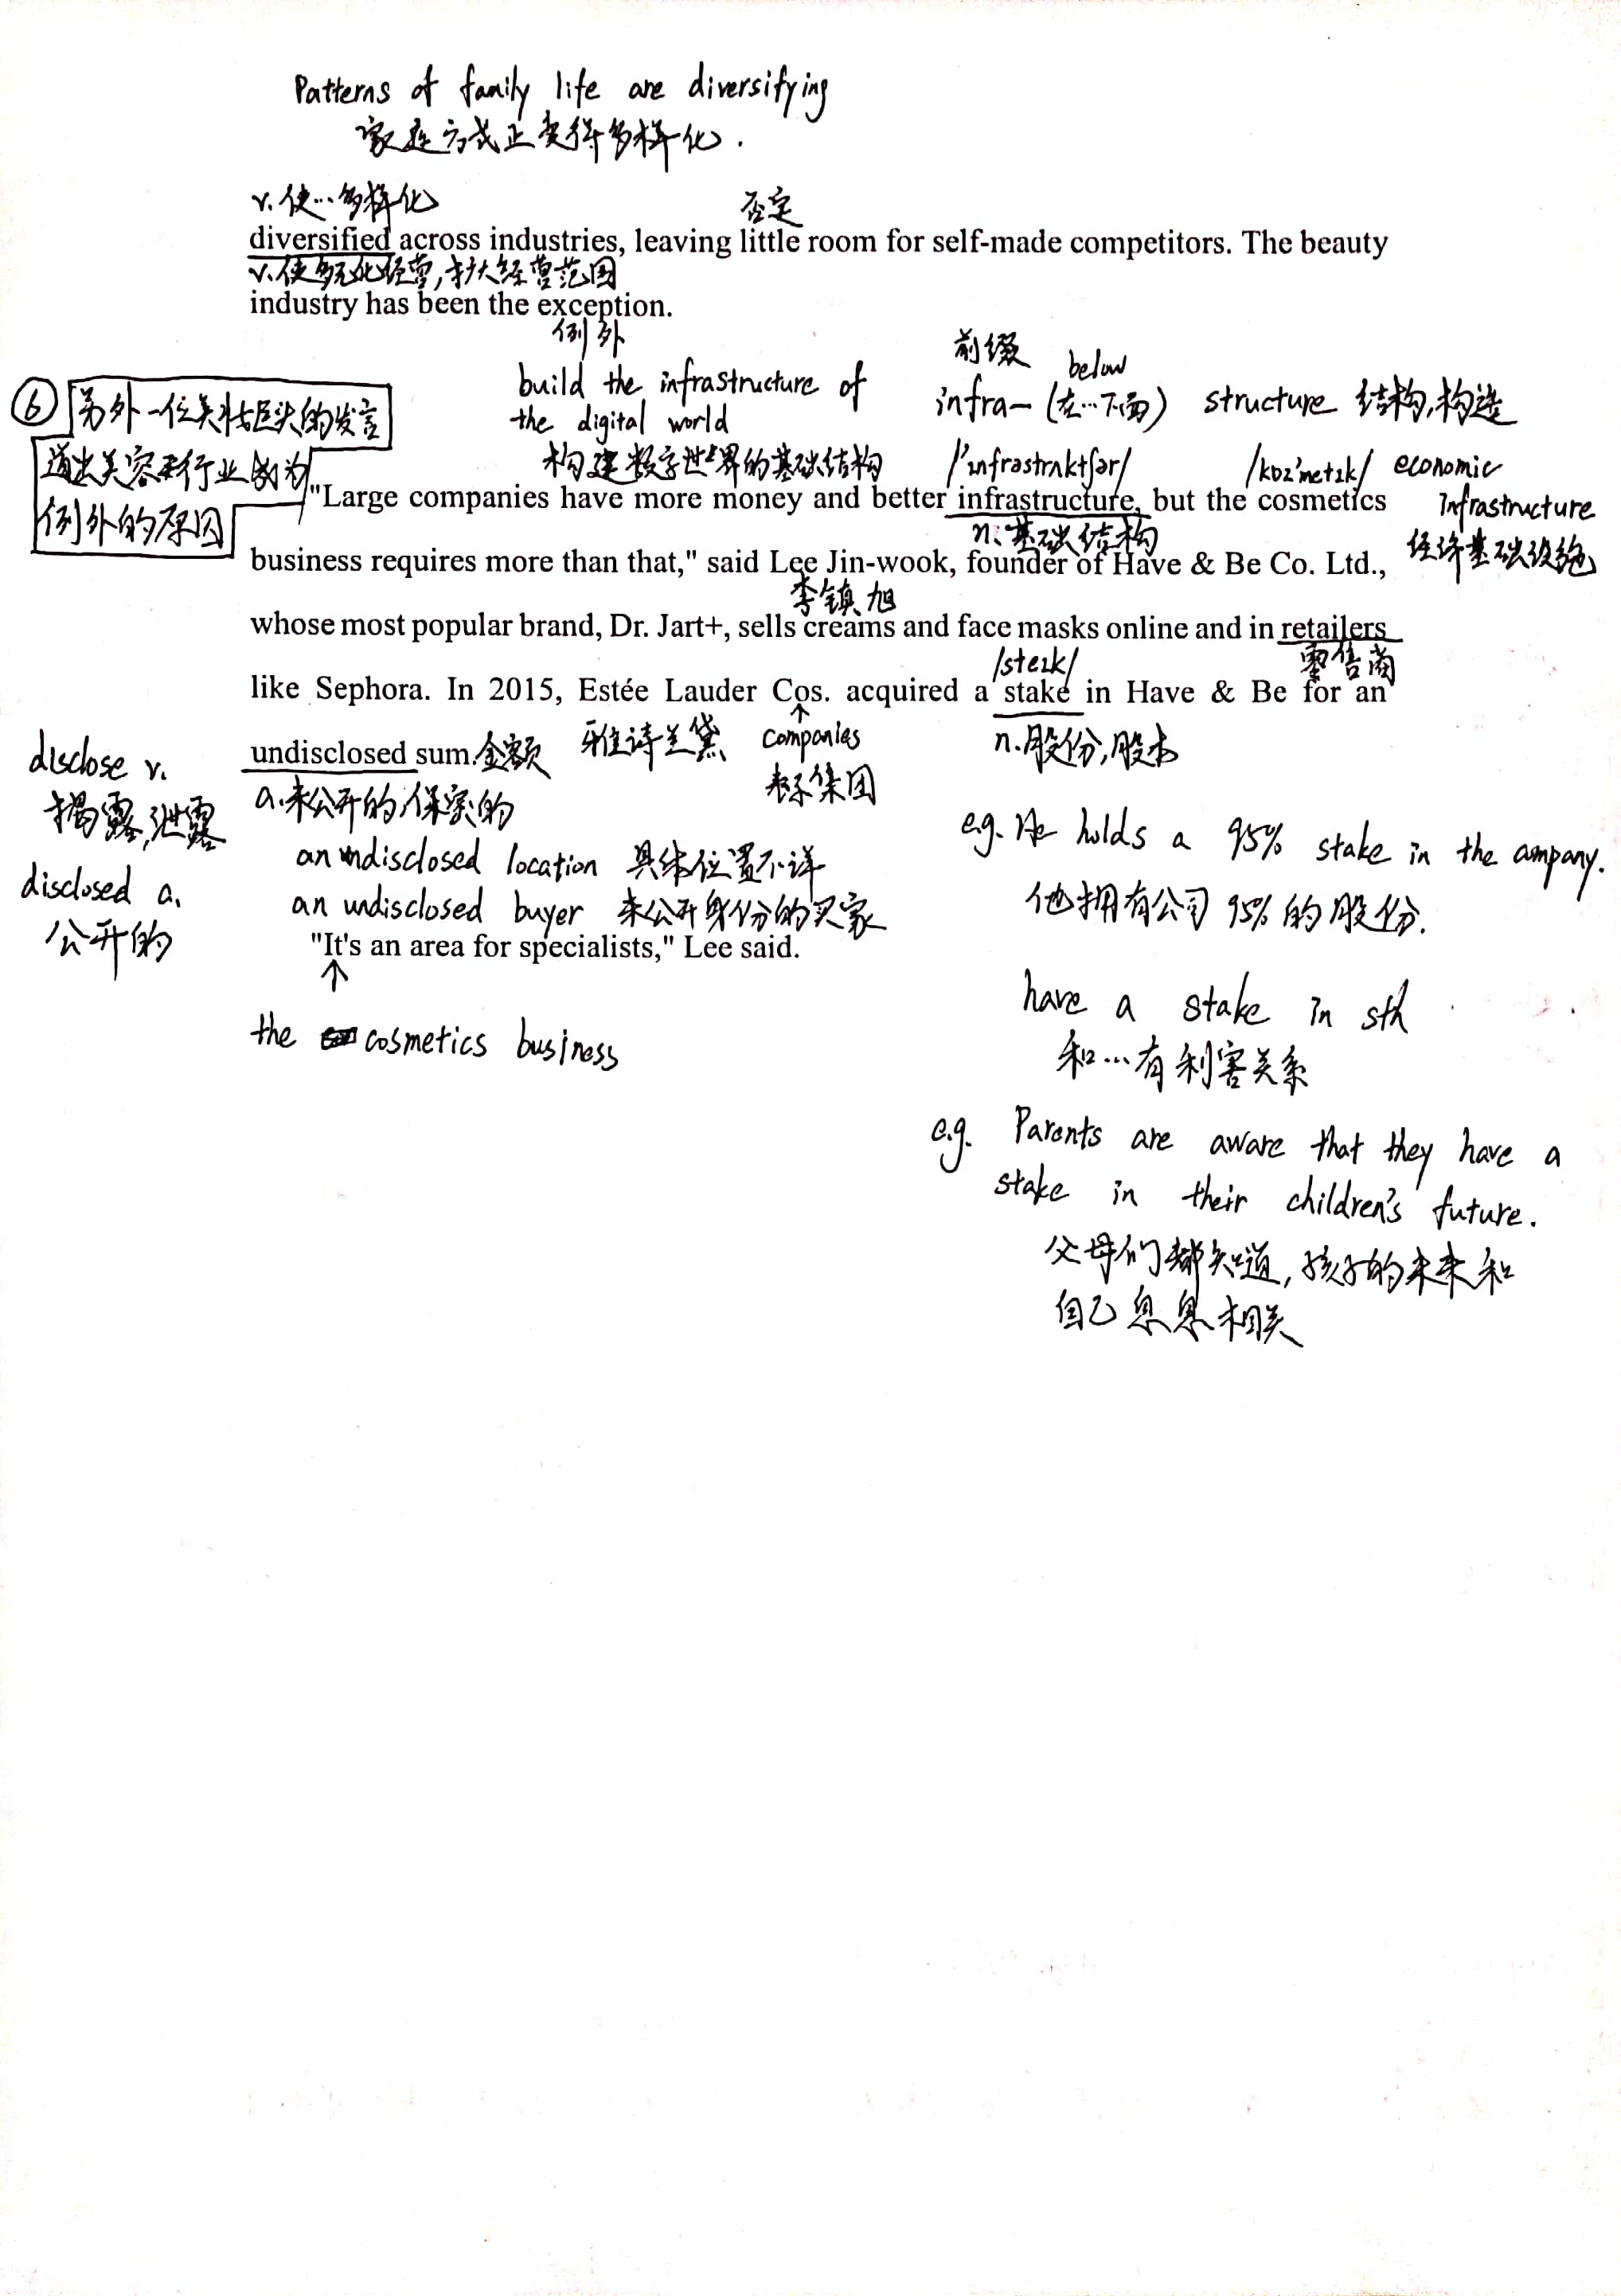 Patterns of family life are diversifying
家庭方式正变得多样化.
v.使…多样化
否定
diversified across industries, leaving little room for self-made competitors. The beauty
v.使多元化经营,扩大经营范围
industry has been the exception.
例外
⑥ 另外一位美妆巨头的发言
道出美容行业成为
例外的原因
build the infrastructure of
the digital world
构建数字世界的基础结构
前缀
infra- (在…下面) below
structure 结构,构造
/'ɪnfrəstrʌktʃər/
/kɒz'metɪk/
economic
infrastructure
经济基础设施
"Large companies have more money and better infrastructure, but the cosmetics
n.基础结构
business requires more than that," said Lee Jin-wook, founder of Have & Be Co. Ltd.,
李镇旭
whose most popular brand, Dr. Jart+, sells creams and face masks online and in retailers
/steɪk/
零售商
like Sephora. In 2015, Estée Lauder Cos. acquired a stake in Have & Be for an
↑
companies
表示集团
雅诗兰黛
n.股份,股本
undisclosed sum.金额
a.未公开的,保密的
disclose v.
揭露,泄露
disclosed a.
公开的
an undisclosed location 具体位置不详
an undisclosed buyer 未公开身份的买家
"It's an area for specialists," Lee said.
↑
the cosmetics business
e.g. He holds a 95% stake in the company.
他拥有公司95%的股份.
have a stake in sth
和…有利害关系
e.g. Parents are aware that they have a
stake in their children's future.
父母们都知道,孩子的未来和
自己息息相关